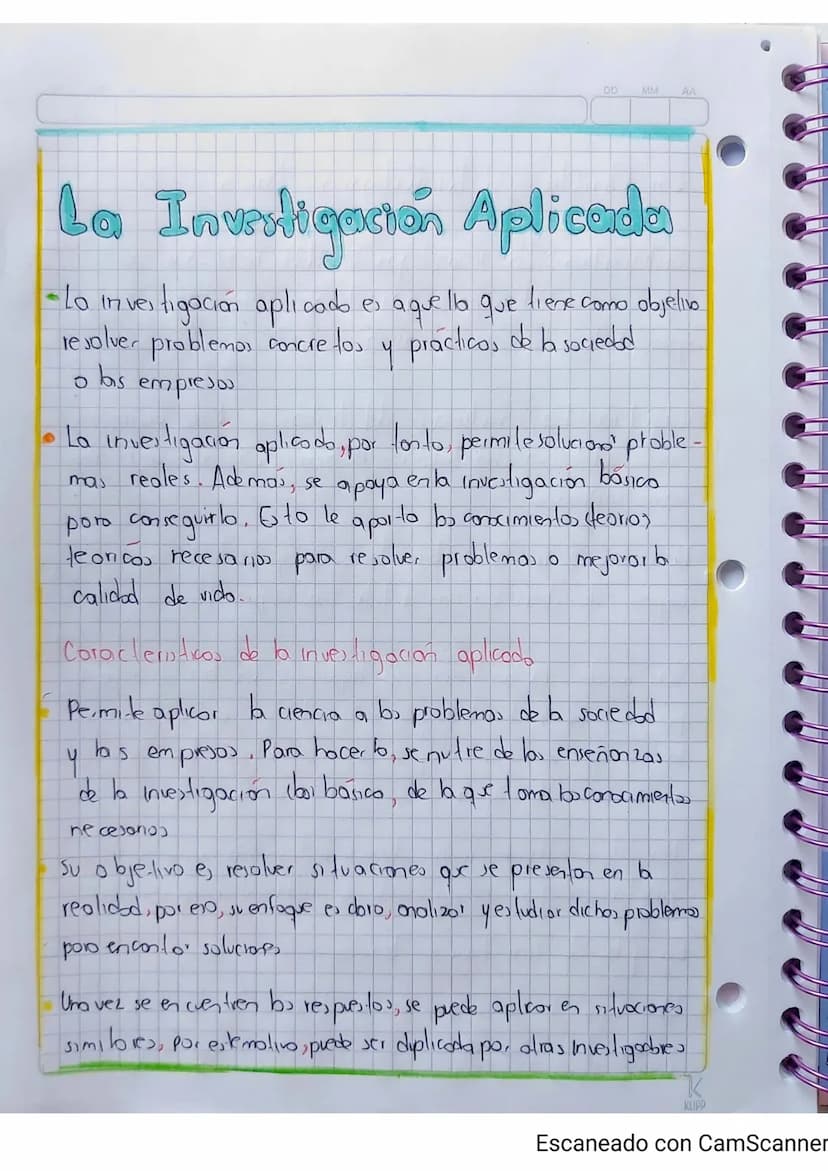 DD MM AA
La Investigación Aplicada
La investigación aplicada es aquella que tiene como objetivo
resolver problemas concretos y prácticos de la sociedad
o las empresas
La investigación aplicada, por tanto, permite solucionar proble-
mas reales. Además, se apoya en la investigación básica
para conseguirlo. Esto le aporta los conocimientos (teorios)
teoricos necesarios para resolver problemas o mejorar la
calidad de vida.
Caracteristicas de la investigación aplicada
Permite aplicar la ciencia a los problemas de la sociedad
y las empresas. Para hacerlo, se nutre de las enseñanzas
de la investigación (ba) básica, de la que toma los conocimientos
necesarios
Su objetivo es resolver situaciones que se presentan en la
realidad, por eso, su enfoque es claro, analizar y estudiar dichos problemas
para encontar soluciones
Una vez se encuentren las respuestas, se puede aplicar en situaciones
similares, por este motivo, puede ser duplicada por otras investigadores
KLIPP
Escaneado con CamScanner